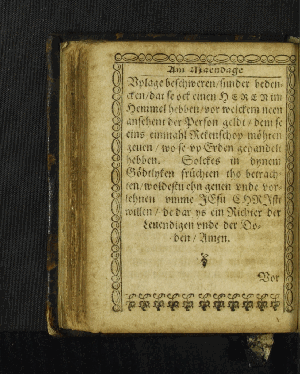 Am Mandage
Vplage beschweren / sunder beden-
cken / dat se ock einen HEREN im
Hemmel hebben / vor welckem neen
ansehent der Person geldt / dem se
eins einmahl Rekenschop möhten
geuen / wo se vp Erden gehandelt
hebben. Solckes in dynem
Gödtlyken früchten tho betrach-
ten / woldestu ehn geuen vnde vor-
lehnen vmme JEsu CHRIsti
willen / de dar ys ein Richter der
Leuendigen vnde der Do-
den / Amen.
Vor